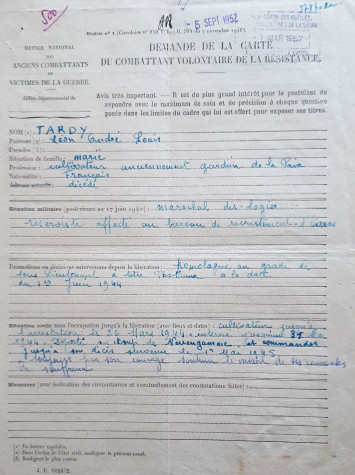 500
AR
5 SEPT 1952
Modèle nº 1 (Circulaire nº
OFFICE NATIONAL
DES
ANCIENS COMBATTANTS
ET
VICTIMES DE LA GUERRE.
Office départemental de
DEMANDE DE LA CARTE
DU COMBATTANT VOLONTAIRE DE LA RÉSISTANCE.
Avis très important. — Il est du plus grand intérêt pour le postulant de
répondre avec le maximum de soin et de précision à chaque question
posée dans les limites du cadre qui lui est offert pour exposer ses titres.
NOM (1) TARDY
Prénoms (2) Léon André Louis
Pseudos (2) :
Situation de famille : marié
Profession : cultivateur anciennement gardien de la Paix
Nationalité : Français
décédé
Situation militaire (postérieure au 17 juin 1940) : maréchal des logis
réserviste affecté au bureau de recrutement d'
Promotions ou décès intervenus depuis la libération : homologué au grade de
sous Lieutenant à titre posthume à la date
du 1er Juin 1944
Situation sous l'occupation jusqu'à la libération (avec lieux et dates) : cultivateur jusqu'à
l'arrestation le 26 Mars 1944 interné jusqu'au
1944. Déporté au camp de Neuengamme, et commandos
jusqu'à son décès survenu le 1er Mai 1945
toujours par son courage soutenu le moral de ses camarades
de souffrance
Blessures (avec indication des circonstances et éventuellement des constatations faites) :
(1) En lettres capitales.
(2) Dans l'ordre de l'état civil, souligner le prénom usuel.
(3) Souligner le plus connu.
J. U. 602672.